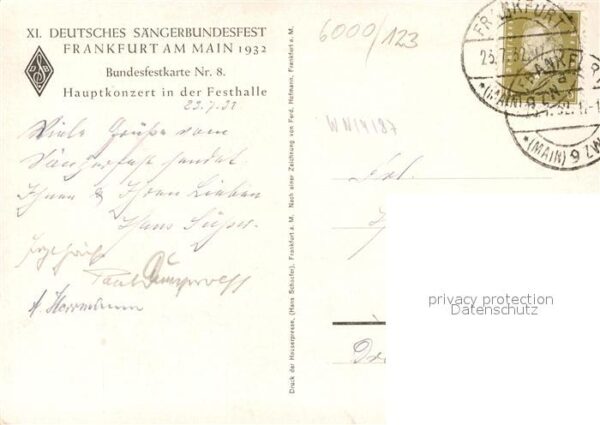 XI. DEUTSCHES SÄNGERBUNDESFEST
FRANKFURT AM MAIN 1932
Bundesfestkarte Nr. 8.
Hauptkonzert in der Festhalle
23.7.32
Viele Grüße vom
Sängerfest sendet
Ihnen & Ihren Lieben
Hans
Paul
A. Herrmann
Druck der Hauserpresse, (Hans Schaefer), Frankfurt a. M. Nach einer Zeichnung von Ferd. Hofmann, Frankfurt a. M.
6000/123
WN14187
FRANKFURT
*(MAIN) 9
FRANKFUR
*(MAIN) 9
Frl.
privacy protection
Datenschutz